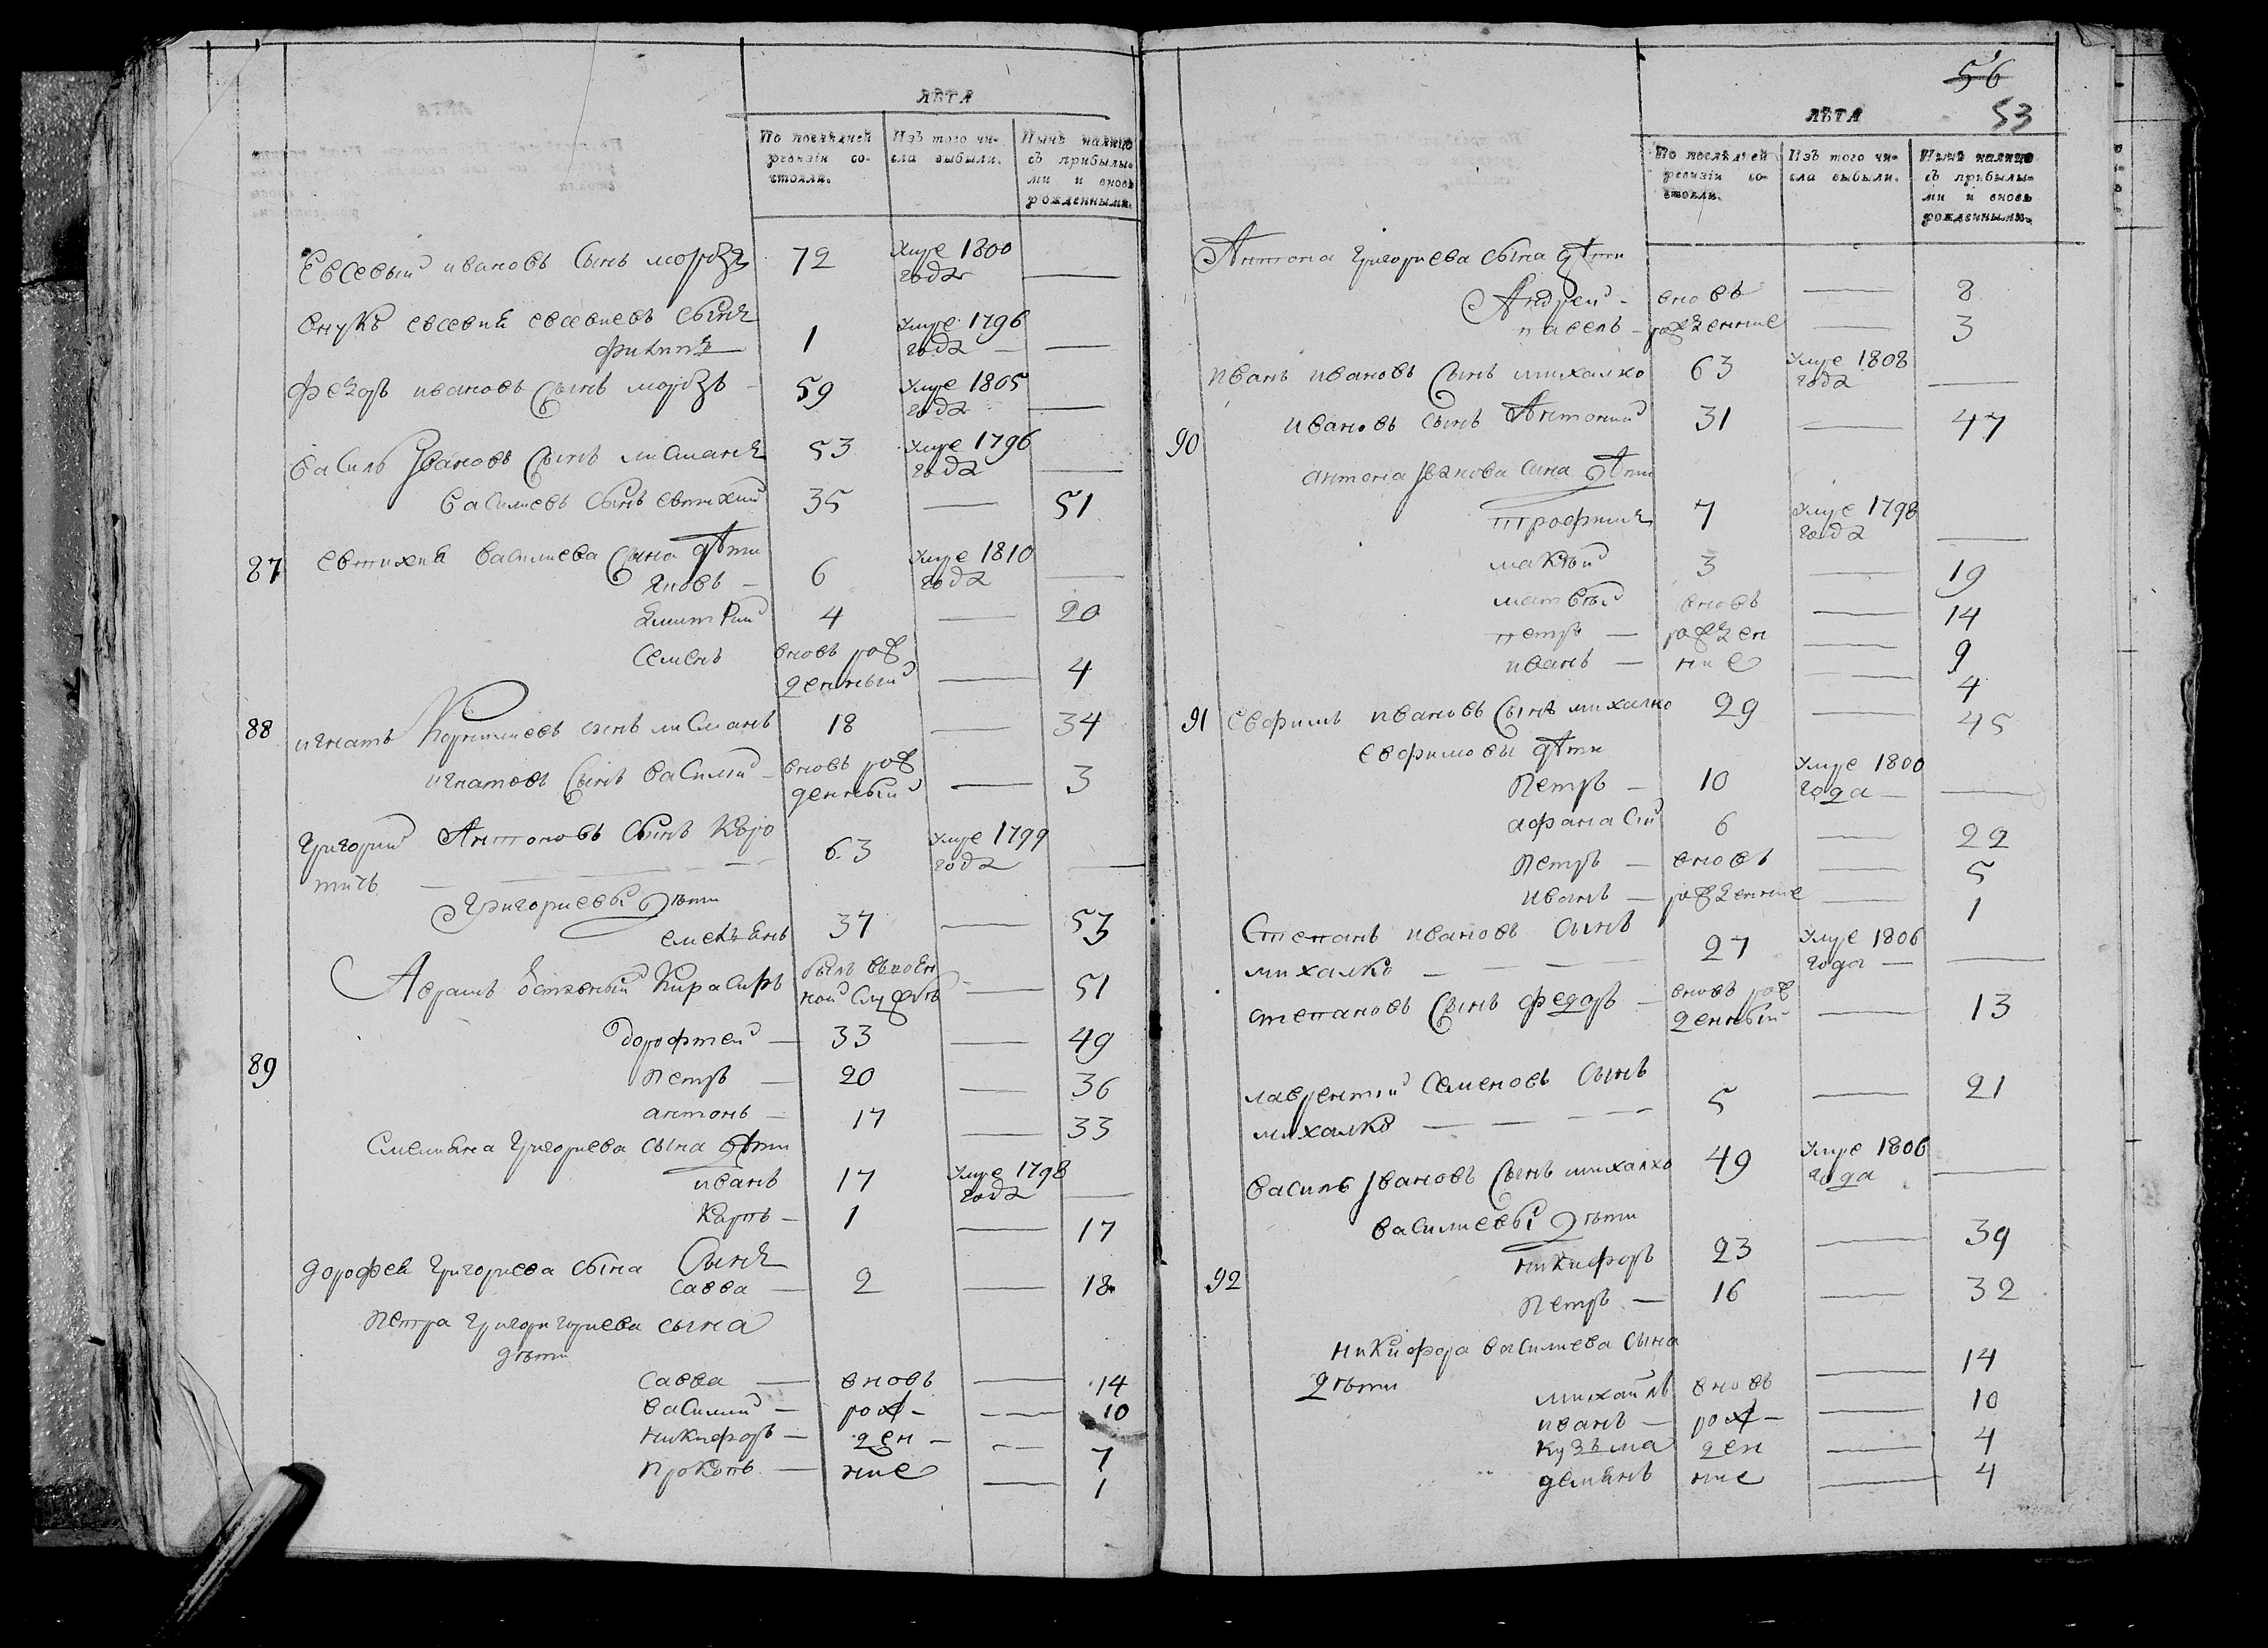 ЛѢТА
По послѣдней ревизіи состояли.
Изъ того числа выбыли.
Нынѣ налицо съ прибылыми и вновь рожденными.
Евсевый ивановъ Сынъ морозъ 72 Умре 1800 года —
Внукъ евсевия евсевиевъ Сынъ
филипъ 1 Умре 1796 года —
федоръ ивановъ Сынъ морозъ 59 Умре 1805 года —
василь Ивановъ Сынъ лисманъ 53 Умре 1796 года —
василиевъ Сынъ евтихий 35 — 51
87 евтихия василиева Сына дѣти
яковъ — 6 Умре 1810 года —
дмитрий 4 — 20
семенъ вновь рожденный — 4
88 игнатъ Корнилиевъ сынъ лисманъ 18 — 34
игнатовъ Сынъ василий вновь рожденный — 3
григорий Антоновъ Сынъ Коротичъ 63 Умре 1799 года —
Григориевы дѣти
емелянъ 37 — 53
Аврамъ Кирасиръ былъ въ военной службѣ — 51
89 дорофтей — 33 — 49
петръ — 20 — 36
антонъ — 17 — 33
Емеляна григориева сына дѣти
иванъ 17 Умре 1798 года —
карпъ — 1 — 17
дорофея григориева сына Сынъ
савва — 2 — 18
петра григоригориева сына
дѣти
савва — вновь — 14
василий — рож- — 10
никифоръ — ден — — 7
прокопъ — ние — 1
56
53
ЛѢТА
По послѣдней ревизіи состояли.
Изъ того числа выбыли.
Нынѣ налицо съ прибылыми и вновь рожденными.
Антона григориева сына дѣти
Андрей — вновь — 8
павелъ — рожденние — 3
иванъ ивановъ Сынъ михалко 63 Умре 1808 года —
90 ивановъ сынъ Антоний 31 — 47
антона Иванова сына дѣти
трофимъ 7 Умре 1798 года —
мокѣй 3 — 19
матвѣй вновь — 14
петръ — рожден — 9
иванъ — ние — 4
91 евфимъ ивановъ Сынъ михалко 29 — 45
евфимовы дѣти
петръ — 10 Умре 1800 года — —
афанасий 6 — 22
петръ — вновь — 5
иванъ — рожденние — 1
Степанъ ивановъ Сынъ
михалко — 27 Умре 1806 года — —
степановъ Сынъ федоръ — вновь рожденный — 13
лаврентий Семеновъ Сынъ
михалко — 5 — 21
василь Ивановъ Сынъ михалко 49 Умре 1806 года —
василиевы дѣти
никифоръ 23 — 39
92 петръ — 16 — 32
никифора василиева сына
дѣти
михайлъ вновь — 14
иванъ — рож- — 10
кузьма ден — 4
демянъ ние — 4